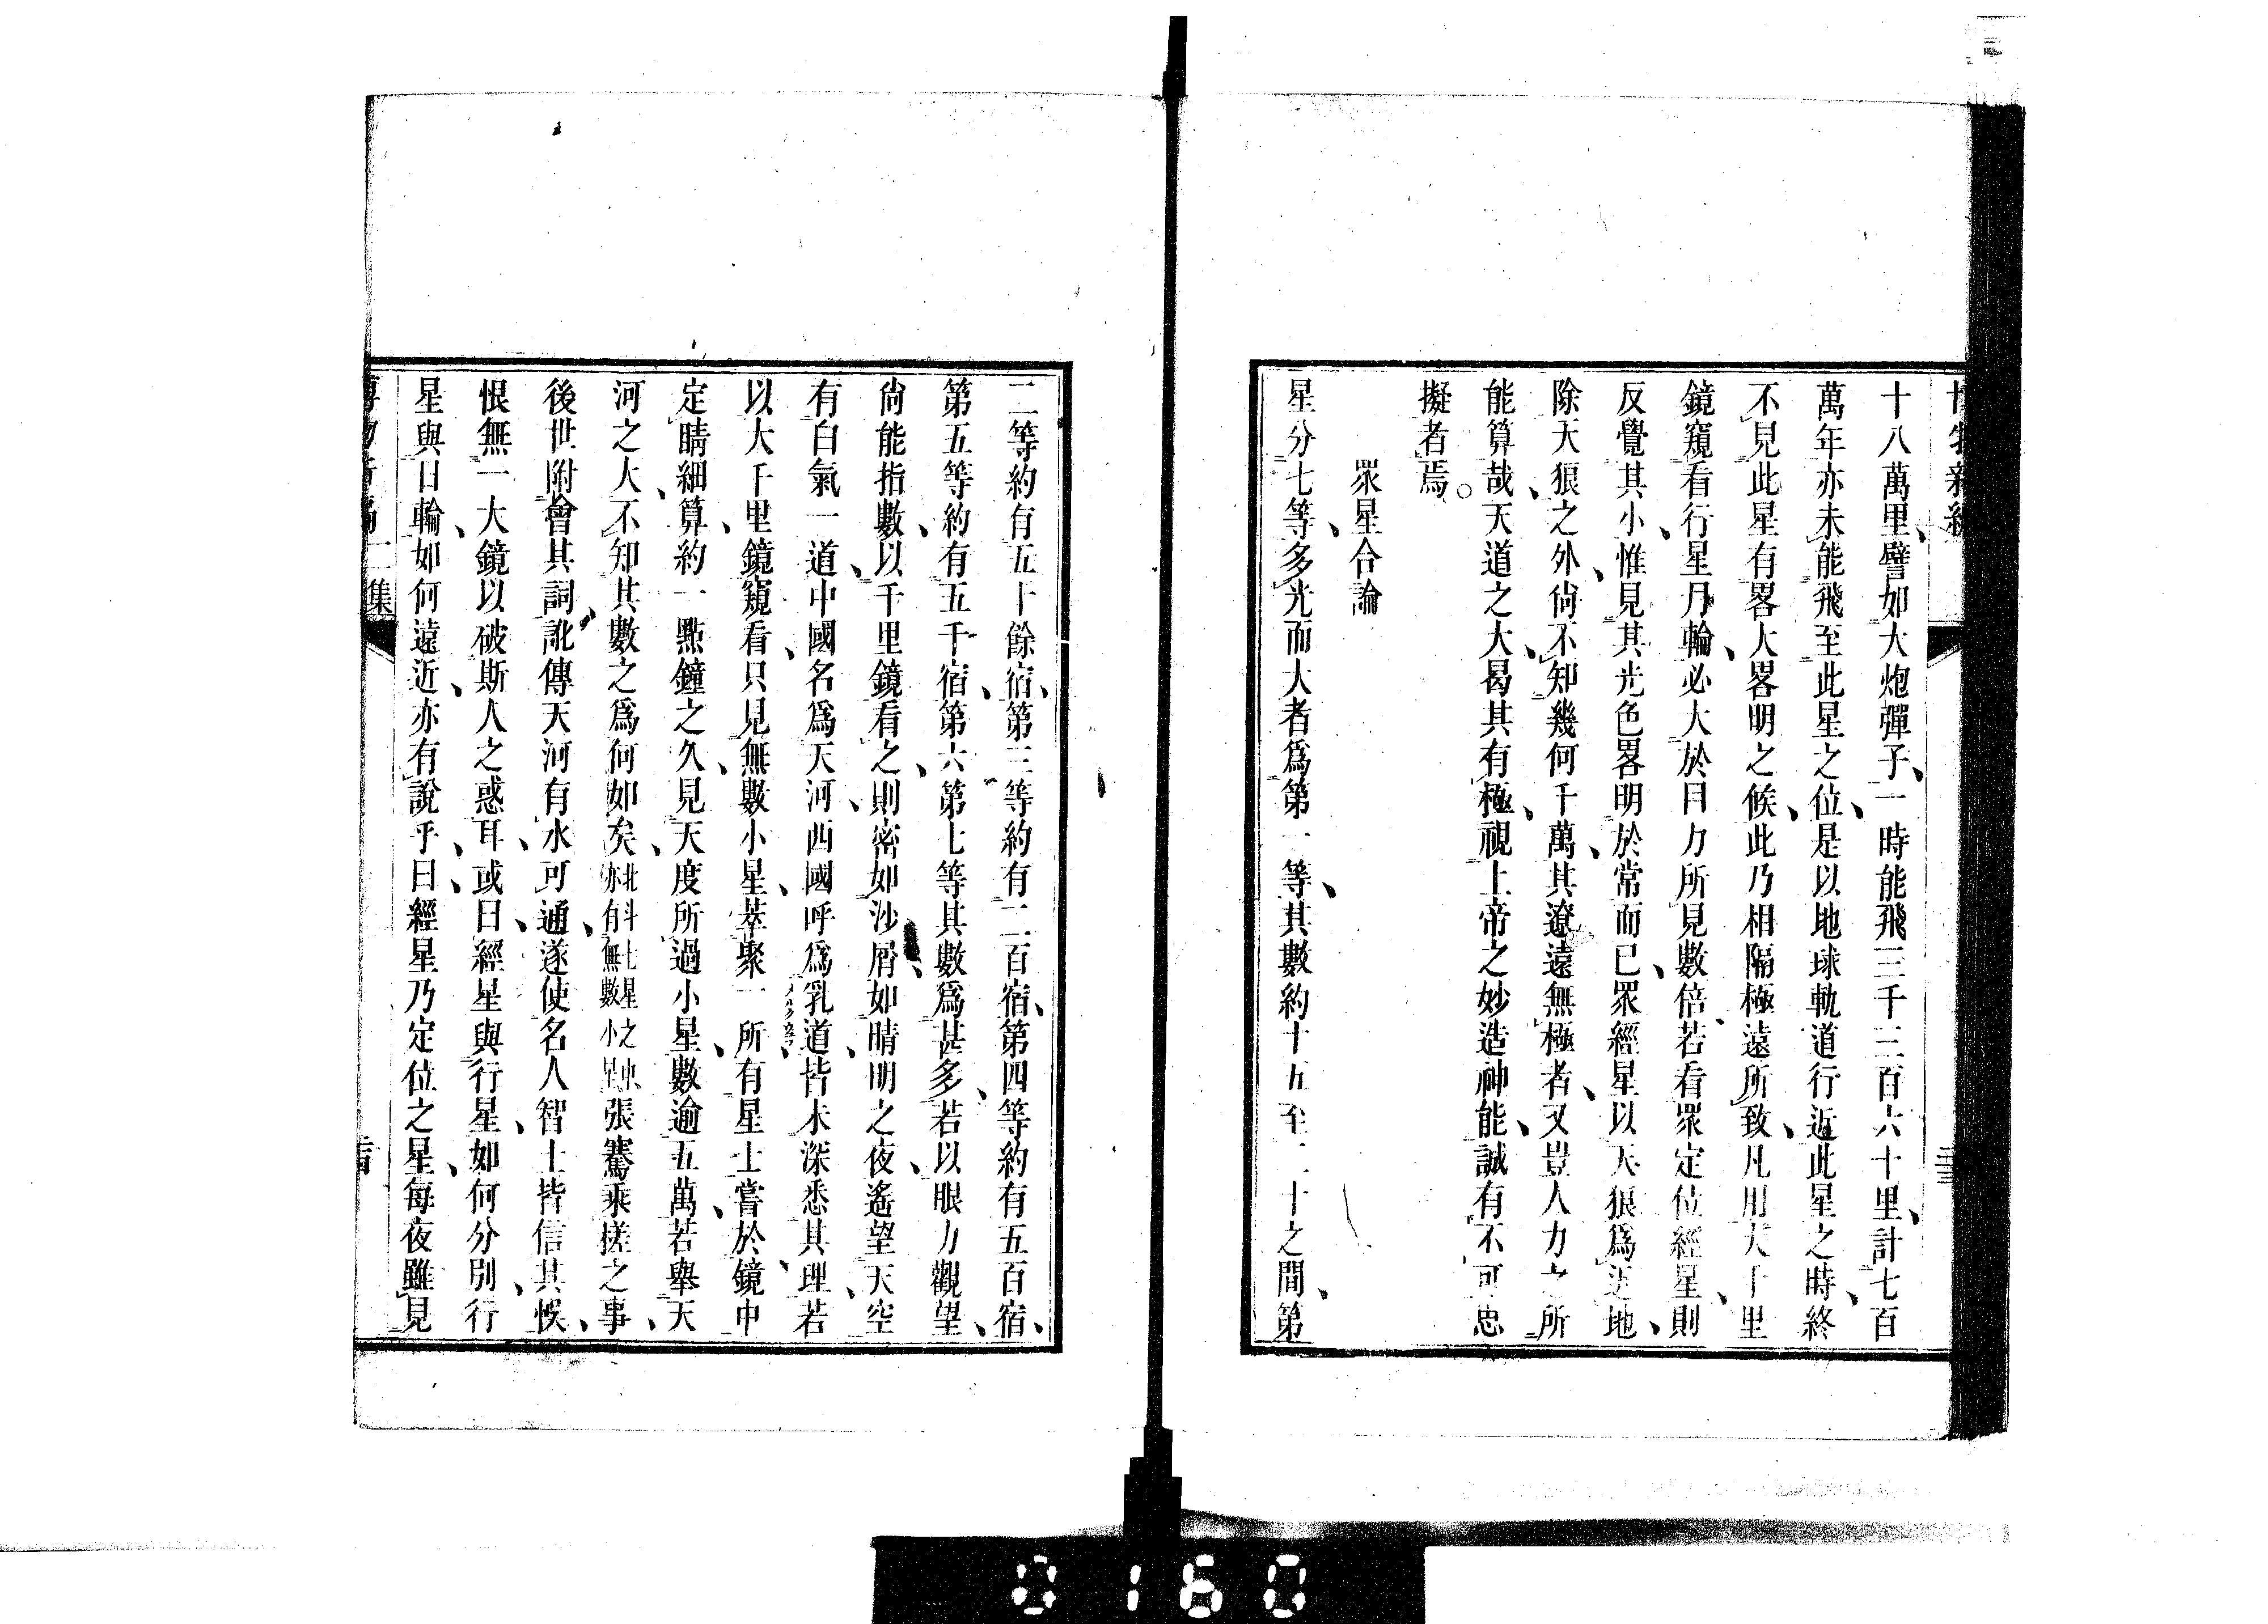 十八萬里、譬如大炮彈子、一時能飛三千三百六十里、計七百
萬年亦未能飛至此星之位、是以地球軌道行近此星之時、終
不見此星有畧大畧明之候、此乃相隔極遠所致、凡用大千里
鏡窺看行星月輪、必大於目力所見數倍、若看眾定位經星、則
反覺其小、惟見其光色畧明於常而已、眾經星以天狼爲近地、
除天狼之外、尙不知幾何千萬、其遼遠無極者、又豈人力之所
能算哉、天道之大、曷其有極、視上帝之妙造神能、誠有不可思
擬者焉。
眾星合論
星分七等、多光而大者爲第一等、其數約十五至二十之間、第
二等約有五十餘宿、第三等約有二百宿、第四等約有五百宿、
第五等約有五千宿、第六第七等其數爲甚多、若以眼力觀望、
尙能指數、以千里鏡看之、則密如沙屑、如晴明之夜、遙望天空
有白氣一道、中國名爲天河、西國呼爲乳道、皆未深悉其理、若
以大千里鏡窺看、只見無數小星、萃聚一所、有星士嘗於鏡中
定睛細算、約一點鐘之久、見天度所過小星、數逾五萬、若舉天
河之大、不知其數之爲何如矣、北斗七星之中亦有無數小星張騫乘槎之事、
後世附會其詞、訛傳天河有水可通、遂使名人智士皆信其悞、
恨無一大鏡以破斯人之惑耳、或曰、經星與行星、如何分別、行
星與日輪、如何遠近、亦有說乎、曰、經星乃定位之星、每夜雖見
二集